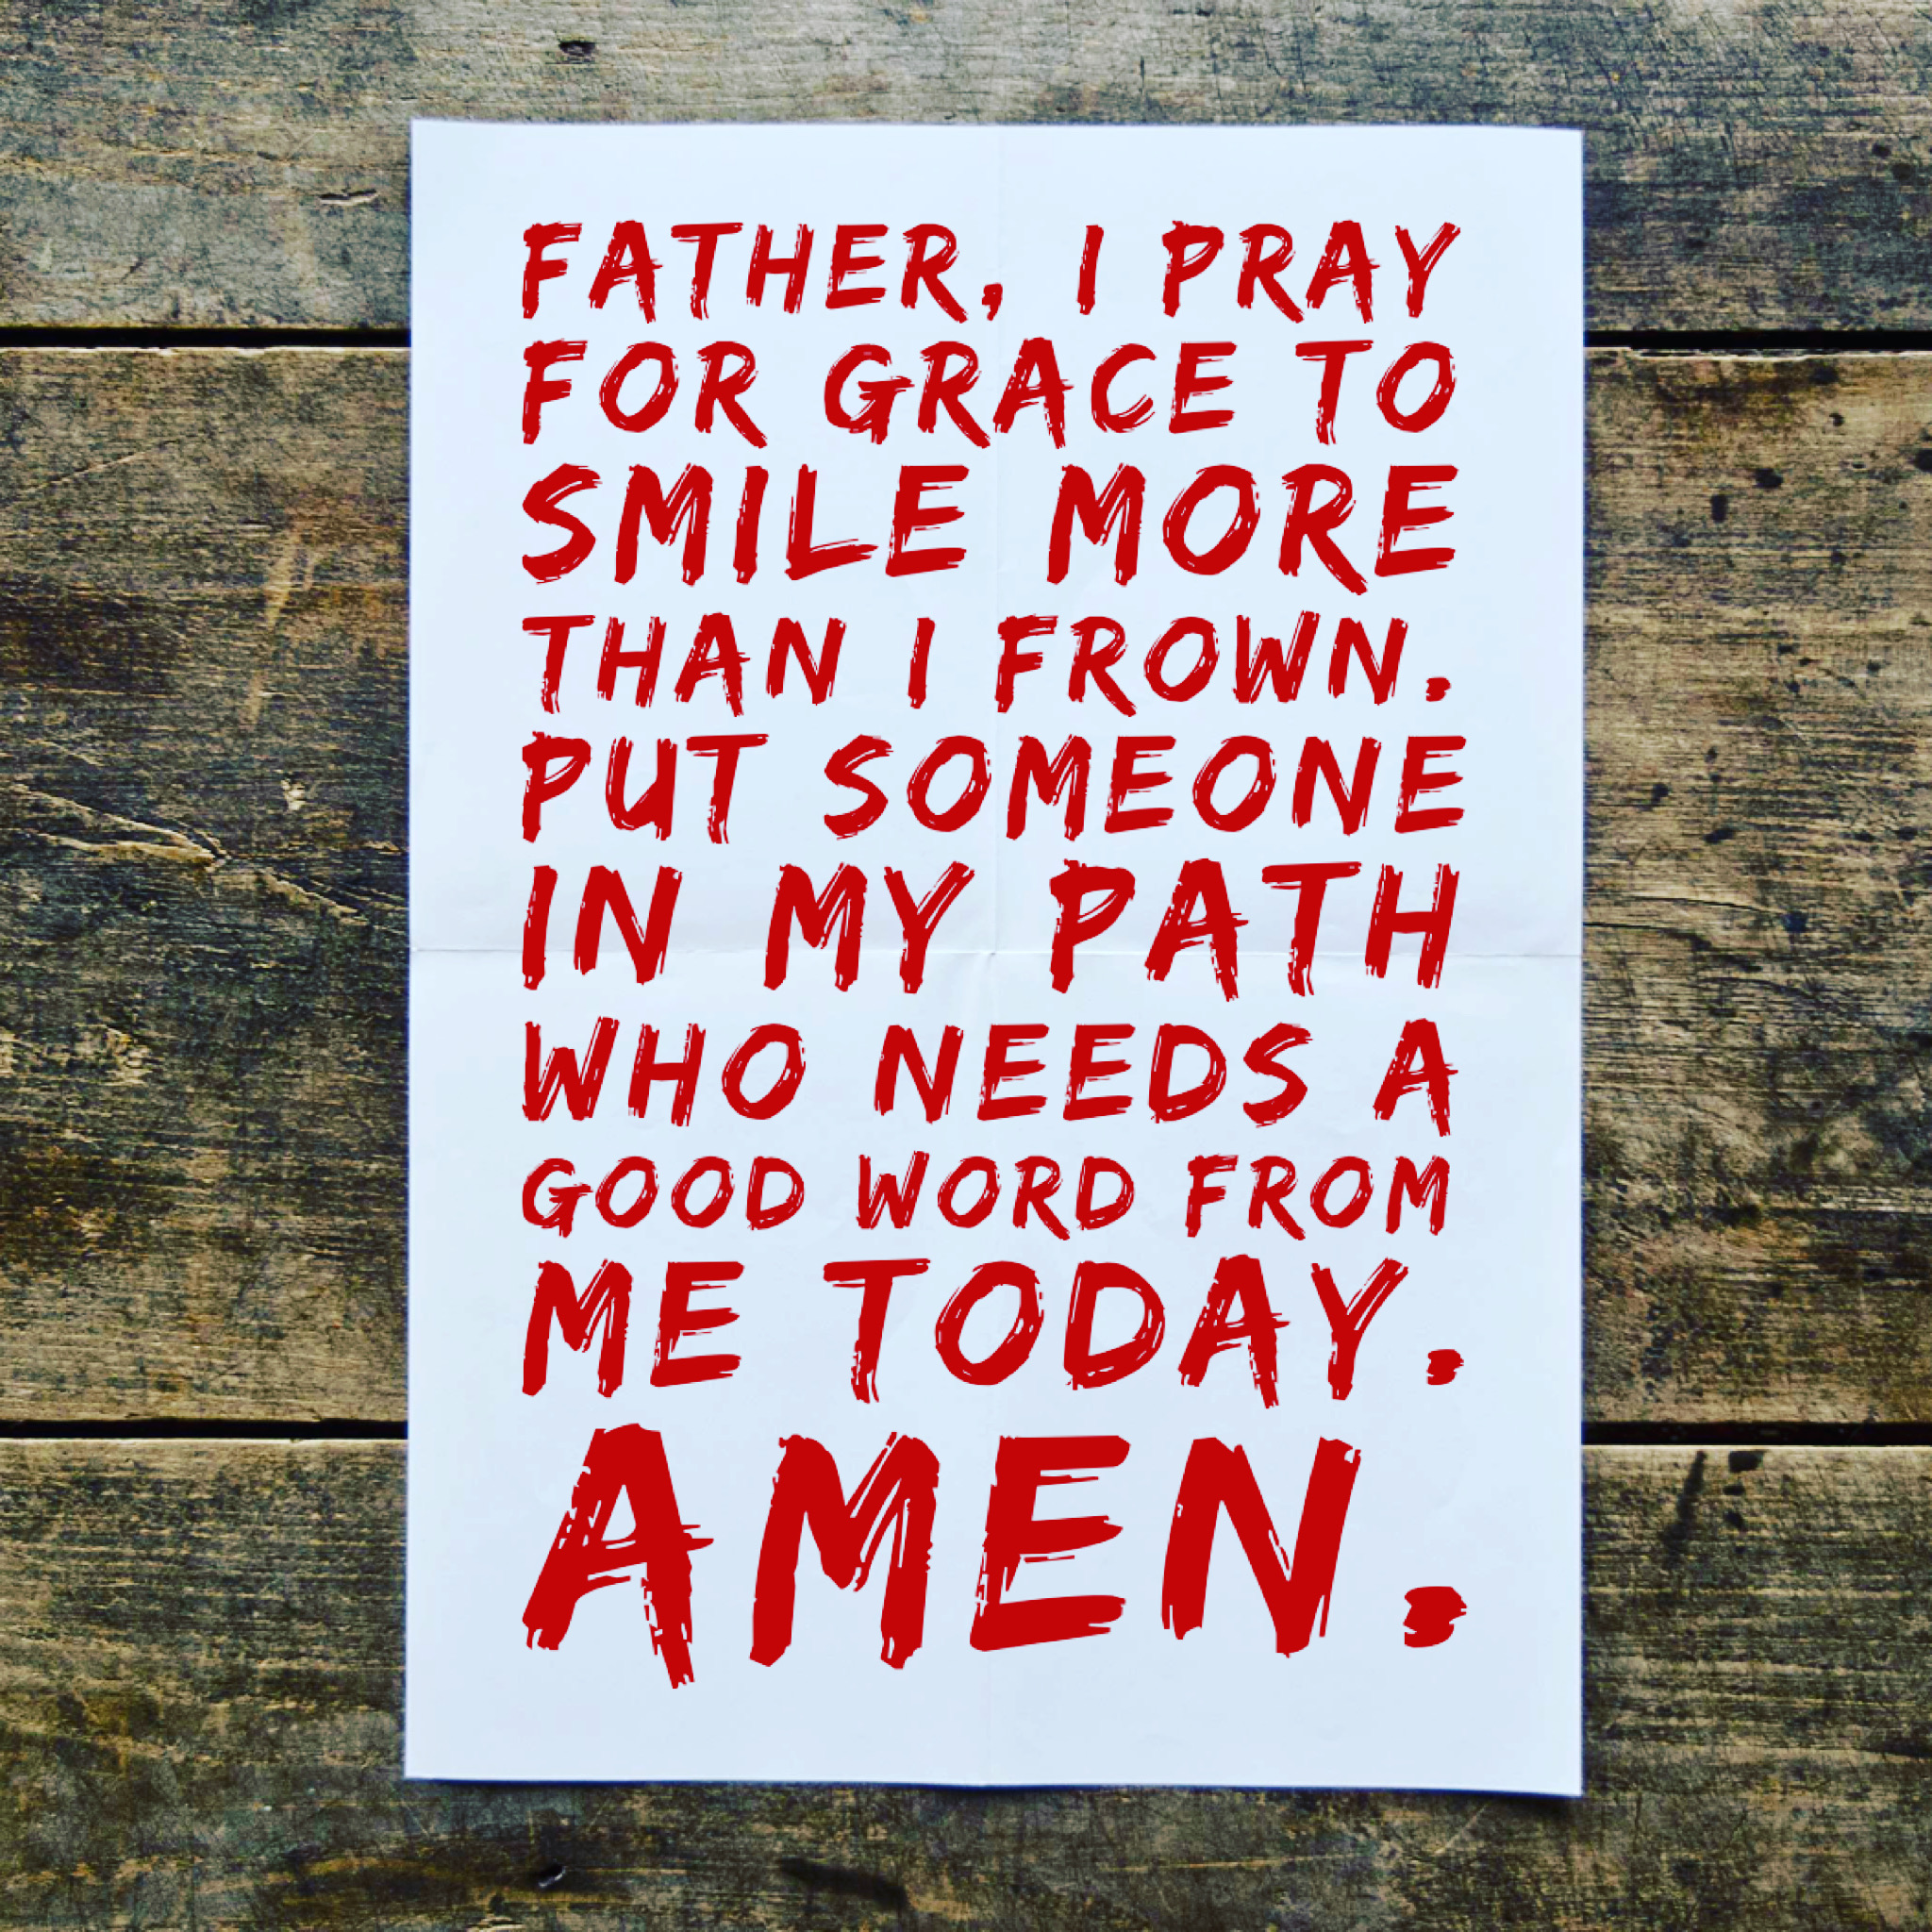 FATHER, I PRAY
FOR GRACE TO
SMILE MORE
THAN I FROWN.
PUT SOMEONE
IN MY PATH
WHO NEEDS A
GOOD WORD FROM
ME TODAY.
AMEN.